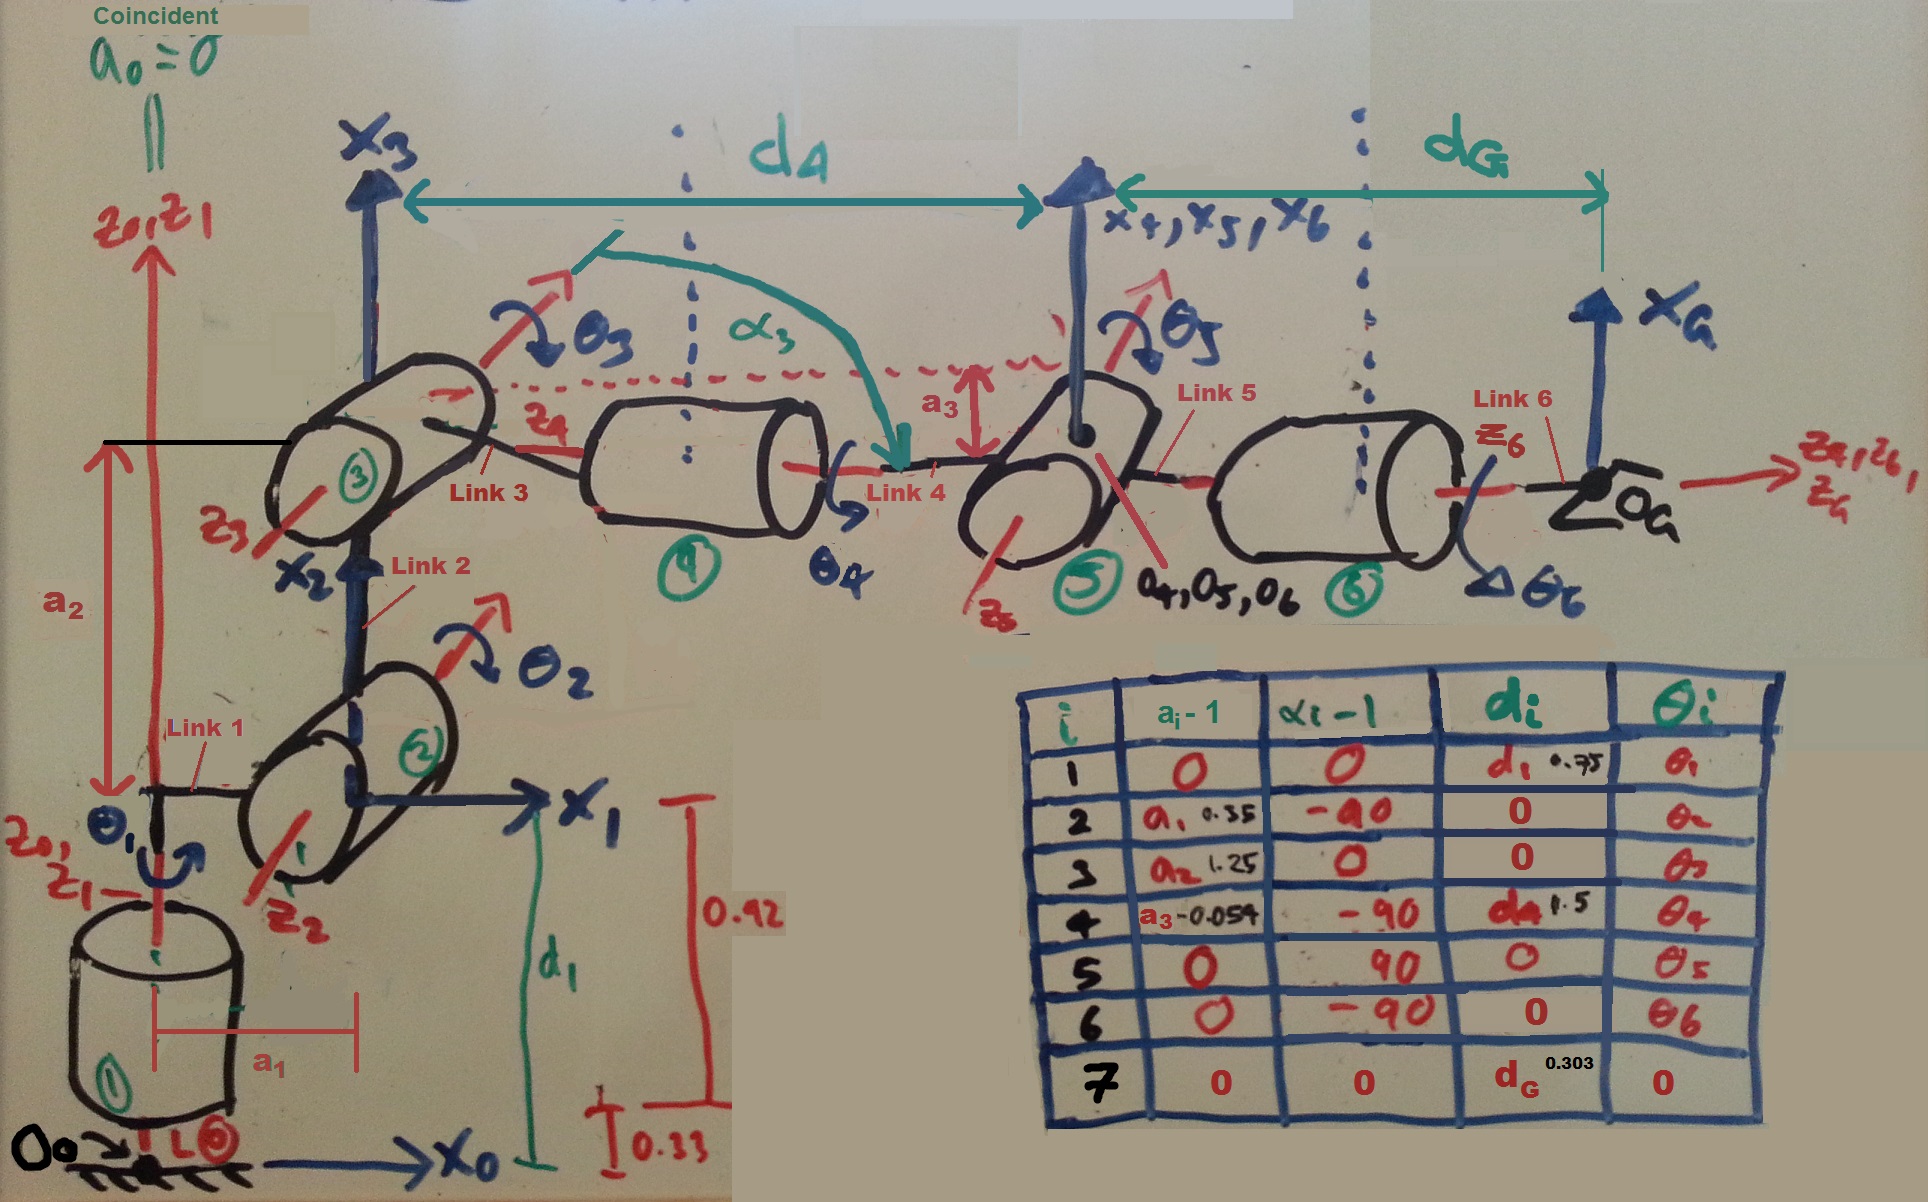 Coincident
a₀ = 0
z₀, z₁
x₃
d₄
dG
x₄, x₅, x₆
xG
θ₃
α₃
θ₅
Link 5
Link 6
z₆
a₃
z₄
③
Link 3
Link 4
zG
0G
z₃
x₂
Link 2
④
θ₄
⑤
z₅
0₄, 0₅, 0₆
⑥
θ₆
a₂
θ₂
②
Link 1
x₁
θ₁
z₀,
z₁
z₂
0.42
d₁
a₁
①
0₀
L⓪
x₀
0.33
i aᵢ-1 αi-1 di θi
1 0 0 d₁ 0.75 θ₁
2 a₁ 0.35 -90 0 θ₂
3 a₂ 1.25 0 0 θ₃
4 a₃ -0.054 -90 d4 1.5 θ₄
5 0 90 0 θ₅
6 0 -90 0 θ6
7 0 0 dG 0.303 0